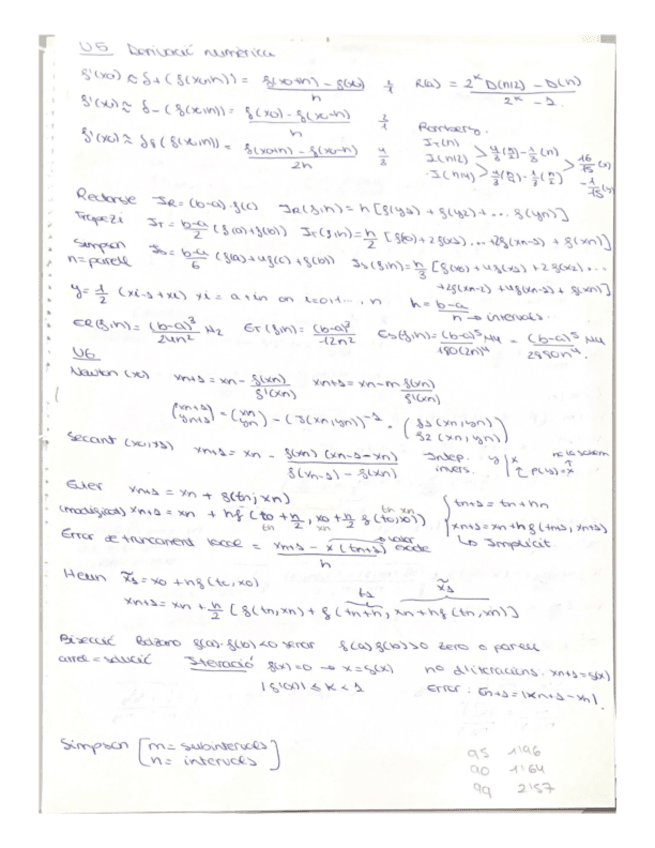 U5 Derivació numèrica
f'(x0) ≈ δ+(f(x0,h)) = f(x0+h) - f(x0) / h   2/1   R(a) = 2^k D(h/2) - D(h) / 2^k - 1
f'(x0) ≈ δ-(f(x0,h)) = f(x0) - f(x0-h) / h   2/1
f'(x0) ≈ δ0(f(x0,h)) = f(x0+h) - f(x0-h) / 2h   4/3
Romberg.
IT(h)
I(h/2) > 4/3(h/2) - 1/3(h)
I(h/4) > 4/3(h/4) - 1/3(h/2) > 16/15( ) - 1/15( )
Rectangle IR = (b-a)·f(c)   IR(f,h) = h[f(y1) + f(y2) + ... f(yn)]
Trapezi IT = b-a/2 (f(a)+f(b))   IT(f,h) = h/2 [f(x0)+2f(x1)...+2f(xn-1) + f(xn)]
Simpson Is = b-a/6 (f(a)+4f(c)+f(b))   Is(f,h) = h/3 [f(x0)+4f(x1)+2f(x2)...
n=parell +2f(xn-2)+4f(xn-1)+f(xn)]
y = 1/2 (xi-1+xi)   xi = a+in on i=0,1..., n   h = b-a / n → intervals.
ER(f,h) = (b-a)³/24n² M2   ET(f,h) = (b-a)³/12n²   Es(f,h) = (b-a)⁵ M4/180(2n)⁴ = (b-a)⁵ M4/2880n⁴.
U6
Newton (x0)   xn+1 = xn - f(xn)/f'(xn)   xn+1 = xn - m f(xn)/f'(xn)
(xn+1 yn+1) = (xn yn) - (J(xn,yn))⁻¹ · (f1(xn,yn) f2(xn,yn))
Secant (x0,x1)   xn+1 = xn - f(xn)(xn-1-xn) / f(xn-1) - f(xn)   Interp. invers. y | x   no la sabem   P(y)=x
Euler xn+1 = xn + f(tn; xn)
(modificat) xn+1 = xn + hf(t0 + h/2, x0 + h/2 f(t0,x0))   tn xn   tn xn
{ tn+1 = tn+hn
xn+1 = xn+hf(tn+1, xn+1)
↳ Implícit
Error de truncament local = xn+1 - x(tn+1) / h → valor exacte
Heun x̃1 = x0 + hf(t0, x0)   t1   x̃1
xn+1 = xn + h/2 [f(tn,xn) + f(tn+h, xn+hf(tn,xn))]
Bisecció Bolzano f(a)·f(b)<0 senar   f(a)·f(b)>0 zero o parell
arrel = solució Iteració f(x)=0 → x=g(x)   no d'iteracions. xn+1=g(x)
|g'(x)| ≤ k < 1   Error: En+1 = |xn+1-xn|.
Simpson [m = subintervals
n = intervals]
95 1'96
90 1'64
99 2'57